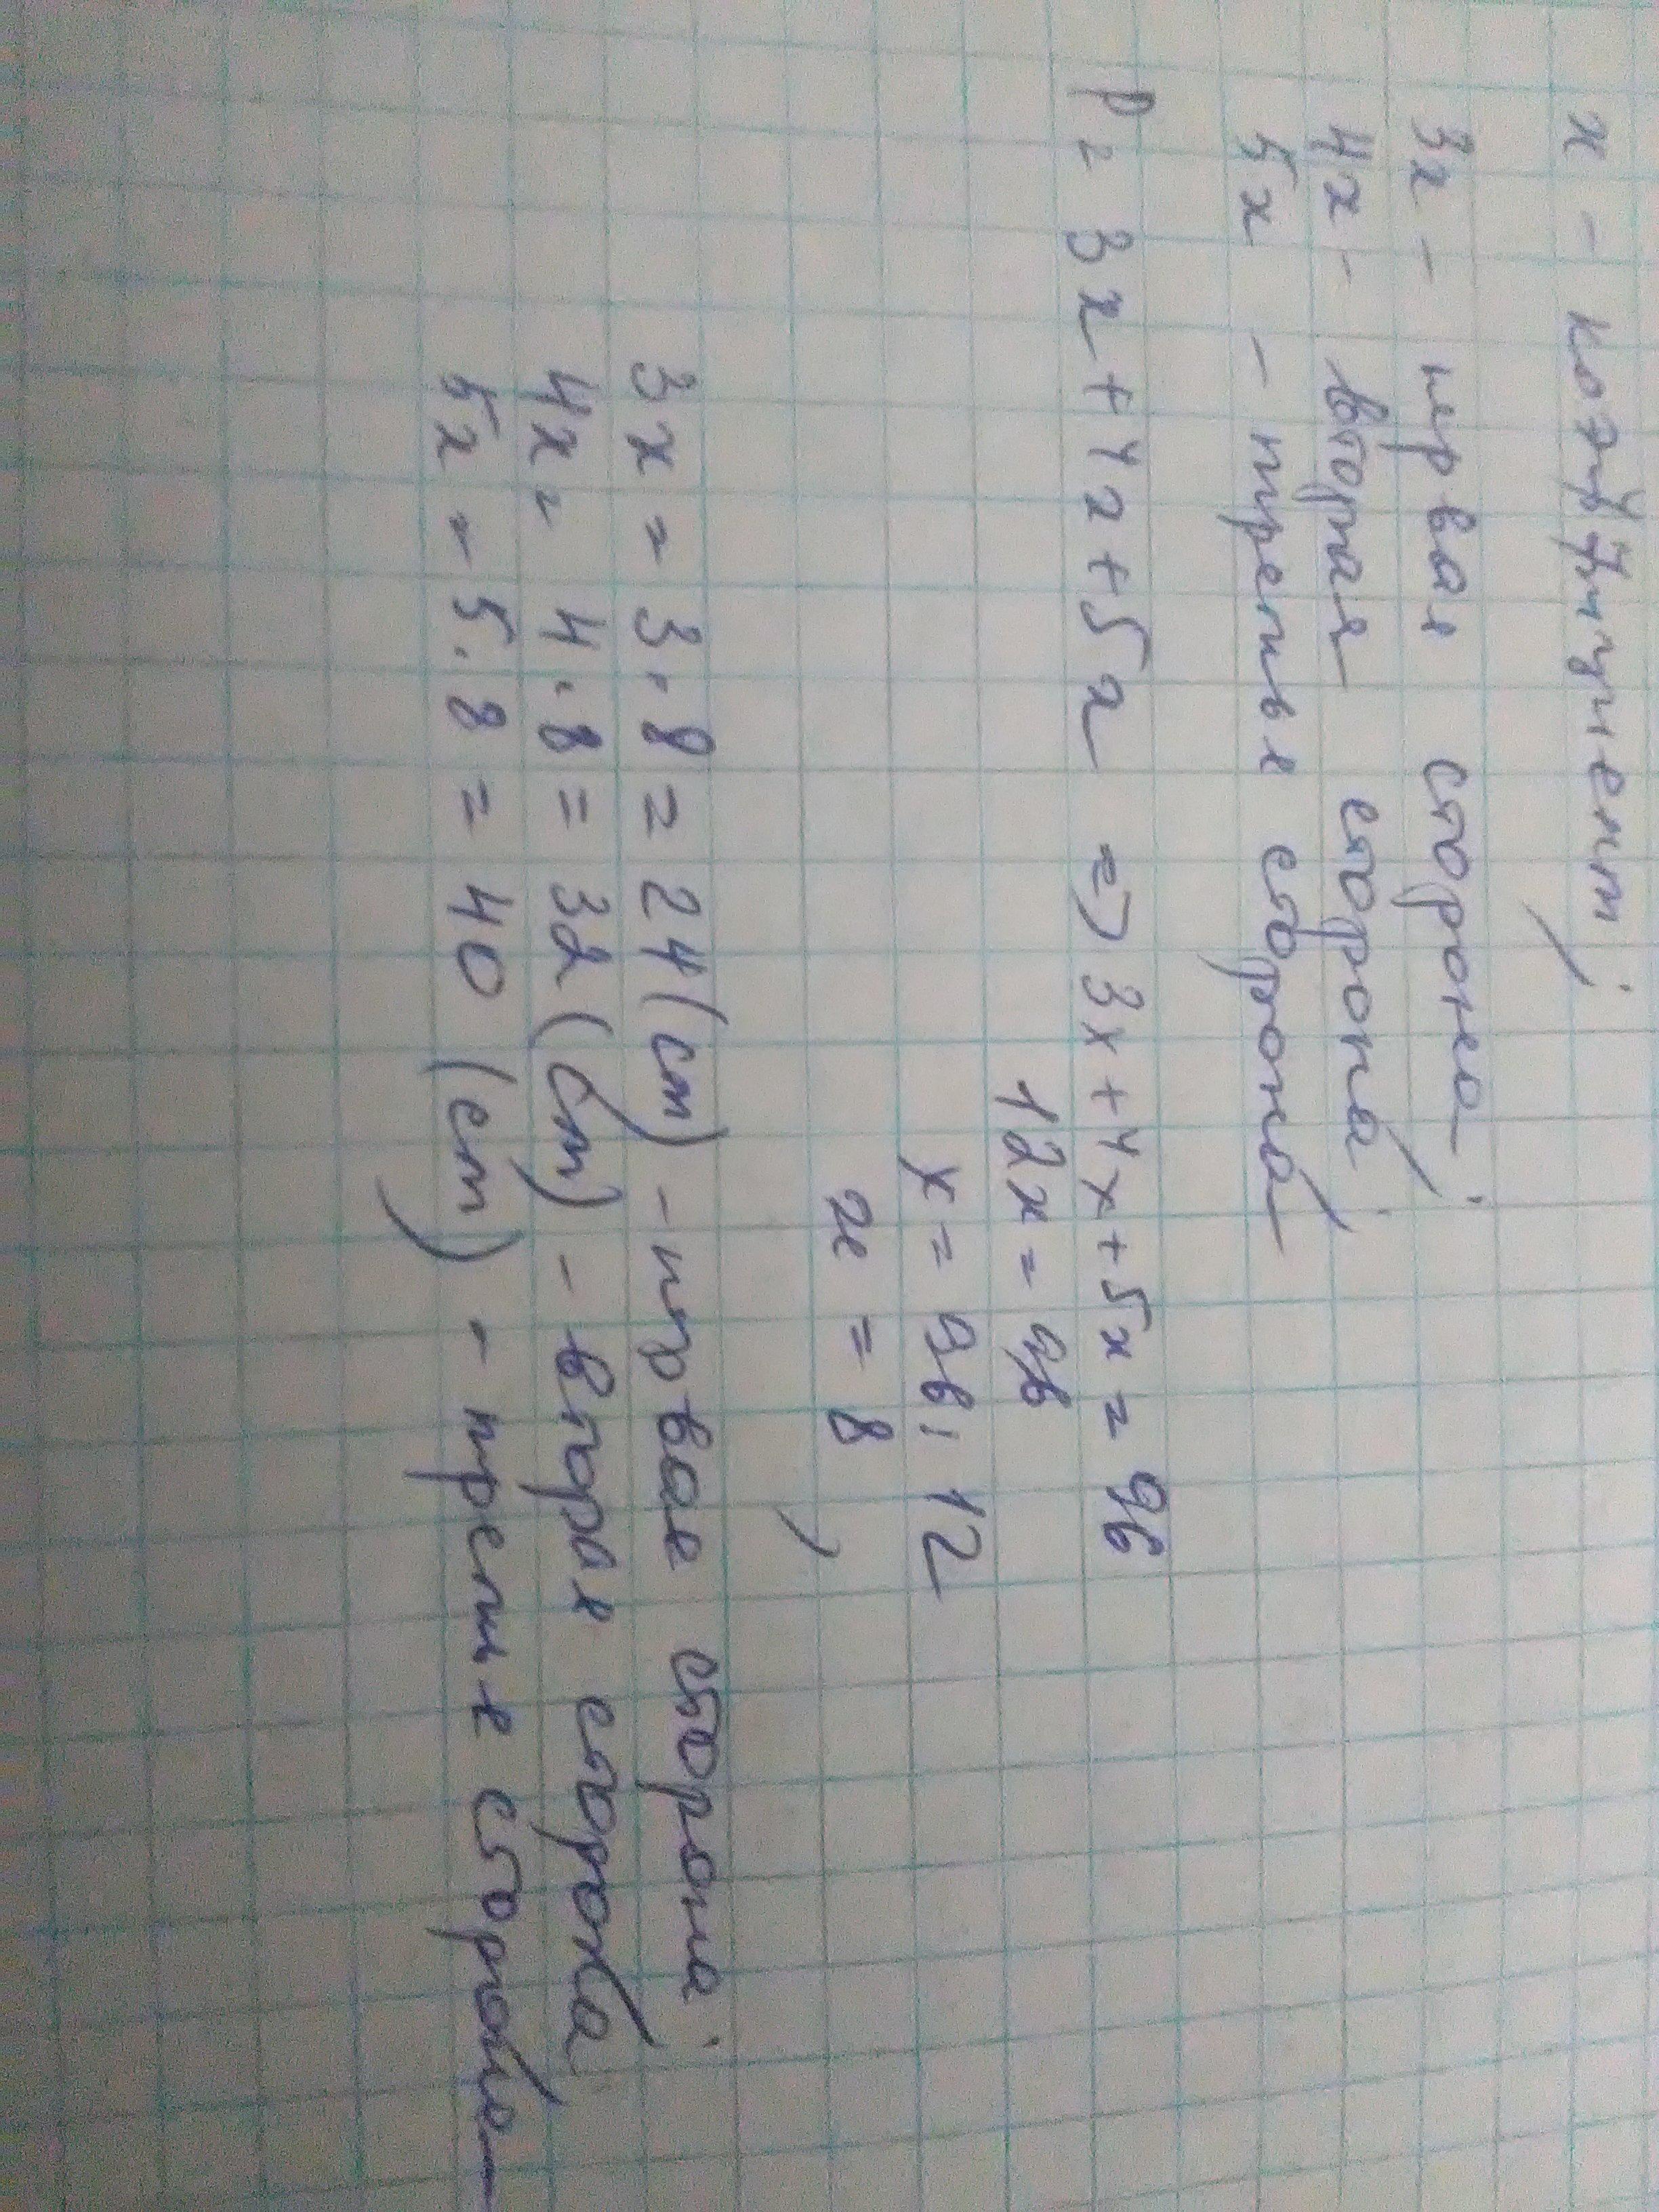 x - коэффициент;
3x - первая сторона;
4x - вторая сторона;
5x - третья сторона
P = 3x + 4x + 5x => 3x + 4x + 5x = 96
12x = 96
x = 96 : 12
x = 8,
3x = 3 · 8 = 24 (см) - первая сторона;
4x = 4 · 8 = 32 (см) - вторая сторона
5x = 5 · 8 = 40 (см) - третья сторона